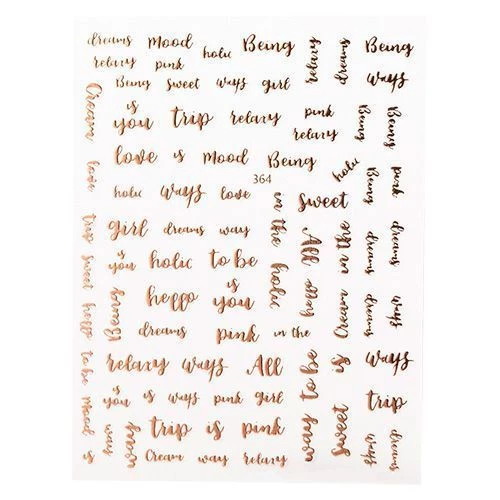 dreams Mood holic Being relaxy dreams Being
relaxy pink
Being sweet ways girl ways
Cream is you trip relaxy pink relaxy Being Being
love is Mood Being holic Being pink
364
love holic ways love in the holic sweet
trip girl dreams way All in the dreams dreams
sweet is you holic to be
heffo Being heffo is you heffo Cream dreams ways
dreams pink in the
to be relaxy ways All way to be is ways
is you is ways pink girl trip
Mood is ways way trip is pink sweet
Cream way relaxy ways dreams